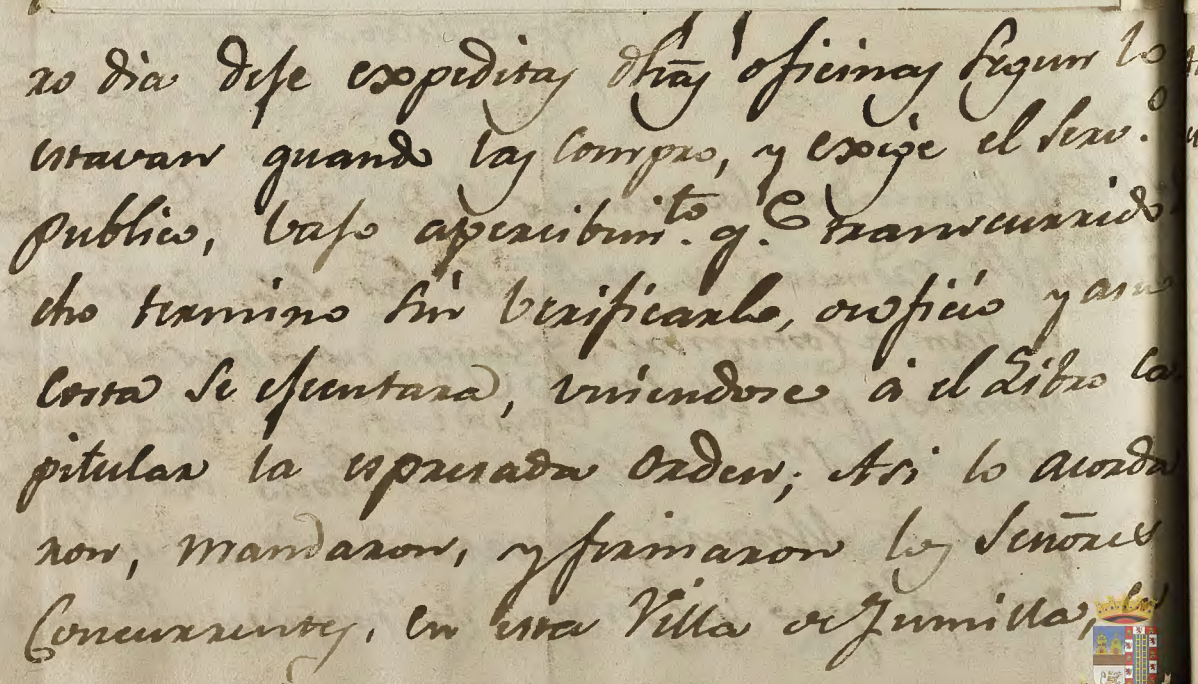 ro dia deje expeditas dhas oficinas segun lo
estavan quando las compro, y exije el serv.o
publico, bajo apercibim.to q.e transcurrido
dho termino sin verificarlo, de oficio y a su
costa se ejecutara, uniendose á el Libro Ca
pitular la espresada orden; Asi lo acorda
ron, mandaron, y firmaron los Señores
Concurrentes, en esta Villa de Jumilla, en